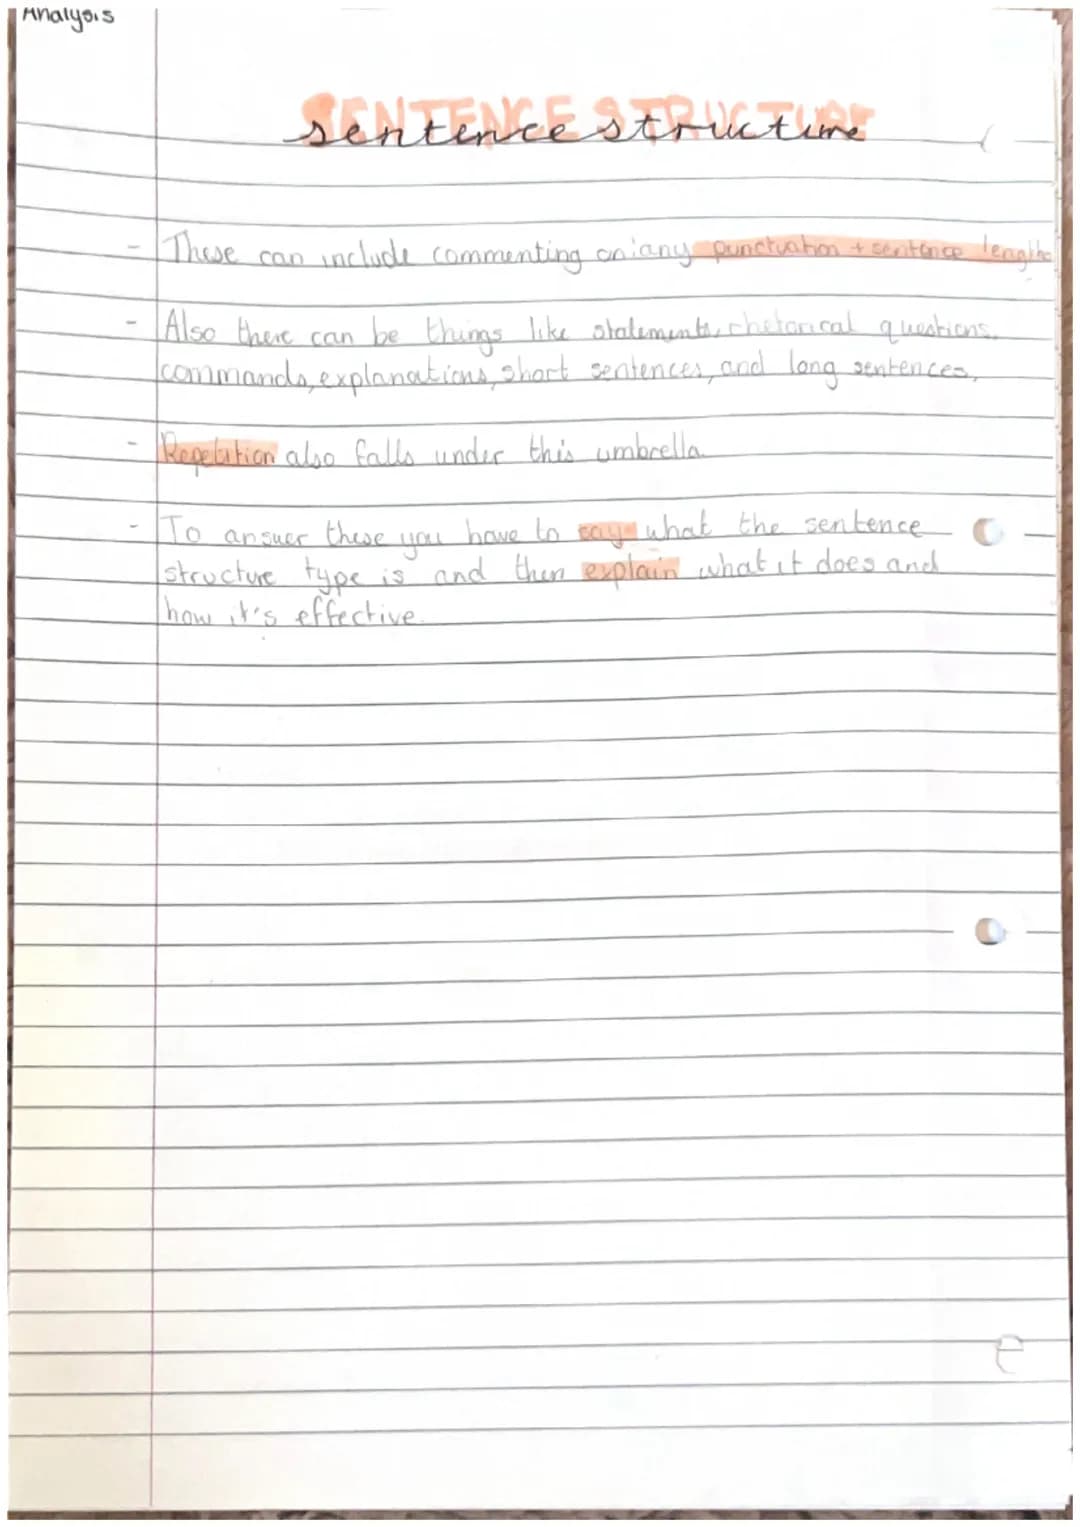 Analysis
SENTENCE STRUCTURE
sentence structure
- These can include commenting on: any punctuation + sentence lengths
- Also there can be things like statements, rhetorical questions,
commands, explanations, short sentences, and long sentences,
- Repetition also falls under this umbrella.
- To answer these you have to say what the sentence
structure type is and then explain what it does and
how it's effective.
e